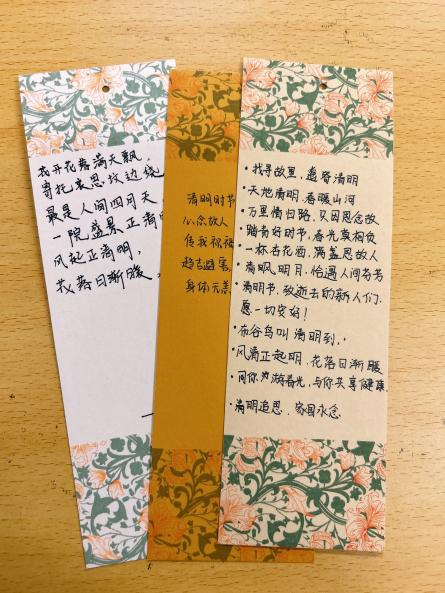 花开花落满天飘，
寄托哀思坟边绕
最是人间四月天，
一院盛景正清明
风起正清明，
花落日渐暖
清明时节
心念故人
传我祝福
趋吉避害
身体元
·找寻故里，
清明
·天地清明，春暖山河
·万里情归路，只因思念故
·踏青好时节，春光莫相负
·一杯杏花酒，满盖思故人
·清风明月，恰遇人间
·清明节，致逝去的新人们，
愿一切安好！
·布谷鸟叫清明到，
·风清正起明，花落日渐暖
·同你 春光，与你共享健康
·清明追思，家国永念